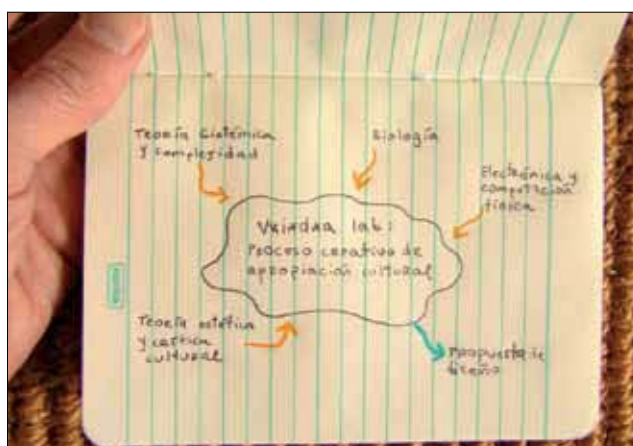 Teoría Sistémica
y complejidad
Biología
Electrónica y
computación
física
lab:
Proceso creativo de
apropiación cultural
Teoría estética
y crítica
cultural
Propuesta de
diseño